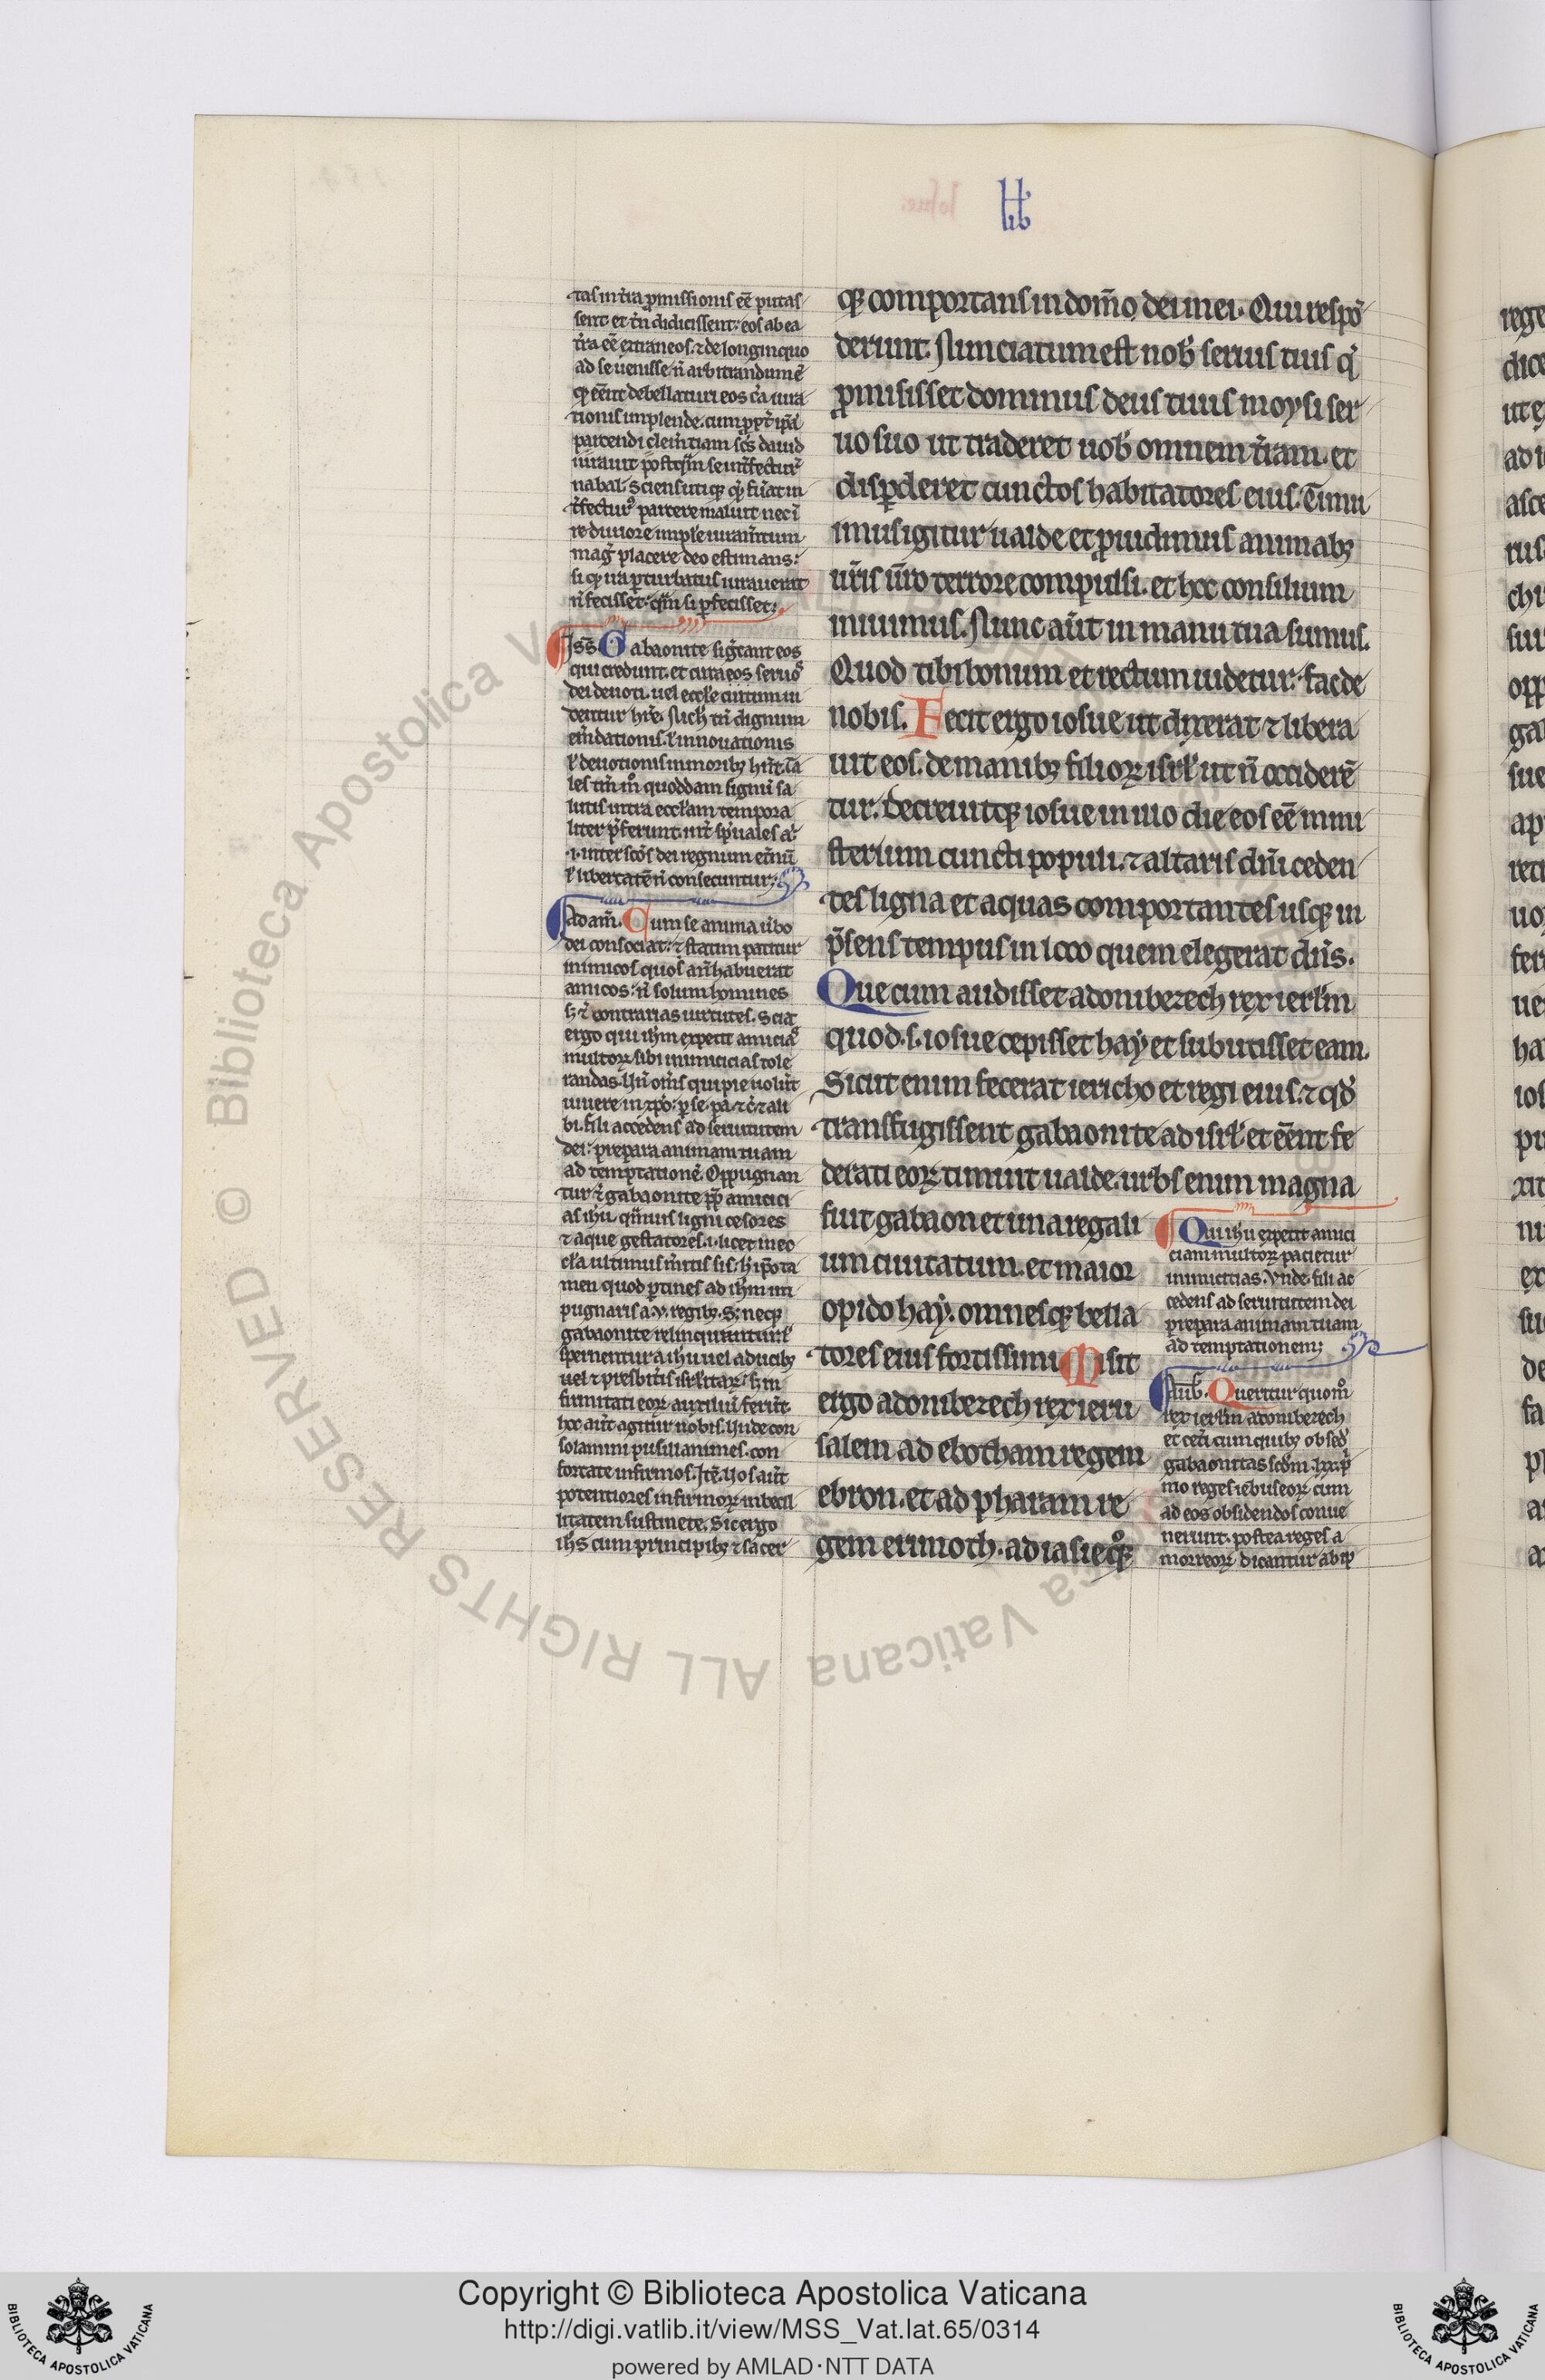 lib
tas in t̄ra ꝓmissionis eē putas
sent. et tn̄ didicissent. eos ab ea
t̄ra eē extraneos. ⁊ de longinquo
ad se uenisse n̄ arbitrandum ē
ꝙ eēnt debellaturi eos cā iura
tionis implende. cum ꝓpt̄ ip̄ā
parcendi clem̄tiam sc̄s dauid
iurauit postqm̄ se int̄fecturū
nabal. Sciens utiqꝫ ꝙ fūat in
t̄fecturꝰ parcere maluit nec ī
re duriore implere iuram̄tum
maḡ placere deo estimans:
si ꝙ ira ꝑturbatus iurauerat
n̄ fecisset. qm̄ si ꝑfecisset.
Iss̄. Gabaonite siḡcant eos
qui credunt. et circa eos seruos
dei deuoti. uel eccl̄e cultum ui
dentur hr̄e. Nich̄ tn̄ dignum
em̄dationis. ł innouationis
ł deuotionis in moribꝫ hn̄t. Ta
les tn̄ in̄ quoddam signū sa
lutis intra eccl̄am tempora
liter p̄ferunt. int̄ spūales aūt
.i. inter sc̄os dei regnum et̄nū
ł libertatē n̄ consecuntur.
Adam̄. Cum se anima ūbo
dei consociat: ⁊ statim patitur
inimicos quos an̄ habuerat
amicos: n̄ solum homines
sꝫ ⁊ contrarias uirtutes. Sciat
ergo qui ih̄m expetit amiciā
multoꝝ sibi inimicicias tole
randas. Hn̄ om̄s qui pie uolūt
uiuere in xp̄o: ꝑse. pa. ⁊ c̄. ⁊ ali
bi. fili accedens ad seruitutem
dei: prepara animam tuam
ad temptationē. Oppugnan
tur ḡ gabaonite ꝓp̄ amicici
as ihu. qm̄uis ligni cesores
⁊ aque gestatores. i. licet in ec
cl̄a ultimus m̄itis sis. h̄ ip̄o ta
men quod ꝑtines ad ih̄m im
pugnaris a .v. regibꝫ. Sꝫ neqꝫ
gabaonite relinquuntur. ł
spernentur a ihu uel a ducibꝫ
uel ⁊ presbit̄is isrl̄itaꝝ. sꝫ in
firmitati eoꝝ auxiliū ferūt.
hoc aūt agitur nobis. Unde con
solamini pusillanimes. con
fortate infirmos. Itē. Uos aūt
potentiores infirmoꝝ inbecil
litatem sustinete. Sic ergo
ih̄s cum principibꝫ ⁊ sacer
qꝫ comportans in domo dei mei. Qui respō
derunt. Nunciatum est nob̄ seruis tuis q̄
ꝓmisisset dominus deus tuus moysi ser
uo suo ut traderet uob̄ omnem t̄ram. et
disꝑderet cunctos habitatores eius. Timu
imus igitur ualde et ꝓuidimus animabꝫ
ur̄is ūro terrore compulsi. et hoc consilium
iniuimus. Nunc aūt in manu tua sumus.
Quod tibi bonum et rectum uidetur. fac de
nobis. Fecit ergo iosue ut dixerat ⁊ libera
uit eos. de manibꝫ filioꝝ isrl̄ ut n̄ occiderē
tur. Decreuitqꝫ iosue in illo die eos eē mini
sterium cuncti populi. ⁊ altaris dn̄i ceden
tes ligna et aquas comportantes usqꝫ in
p̄sens tempus in loco quem elegerat dn̄s.
Que cum audisset adonibezech rex ierl̄m
quod .s. iosue cepisset hay et subuertisset eam.
Sicut enim fecerat iericho et regi eius. ⁊ qd̄
transfugissent gabaonite ad isrl̄ et eēnt fe
derati eoꝝ timuit ualde. urbs enim magna
fuit gabaon et una regali
um ciuitatum. et maior
opido hay. omnesqꝫ bella
tores eius fortissimi Misit
ergo adonibezech rex ieru
salem ad ebotham regem
ebron. et ad pharam re
gem erimoth. ad iasieqꝫ
Qui ihu expetit amici
ciam multoꝝ patietur
inimicitias. Vnde. fili ac
cedens ad seruitutem dei
prepara animam tuam
ad temptationem.
Aub̄. Queritur quom̄
rex ierl̄m adonibezech
et cet̄i cum quibꝫ obsed̄
gabaonitas scdm̄ .lxx. p̄
mo reges iebuseoꝝ cum
ad eos obsidendos conue
nerunt. postea reges a
morreoꝝ dicantur ab ip
rege
dice
ad i
asce
rus
Copyright © Biblioteca Apostolica Vaticana
http://digi.vatlib.it/view/MSS_Vat.lat.65/0314
powered by AMLAD·NTT DATA
© Biblioteca Apostolica Vaticana ALL RIGHTS RESERVED
BIBLIOTECA APOSTOLICA VATICANA
BIBLIOTECA APOSTOLICA VATICANA